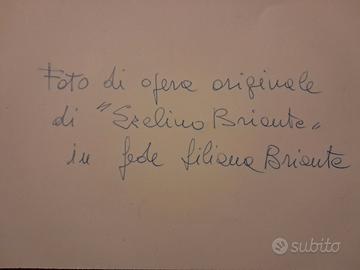 Foto di opera originale
di "Ezelino Briante"
in fede Liliana Briante
subito